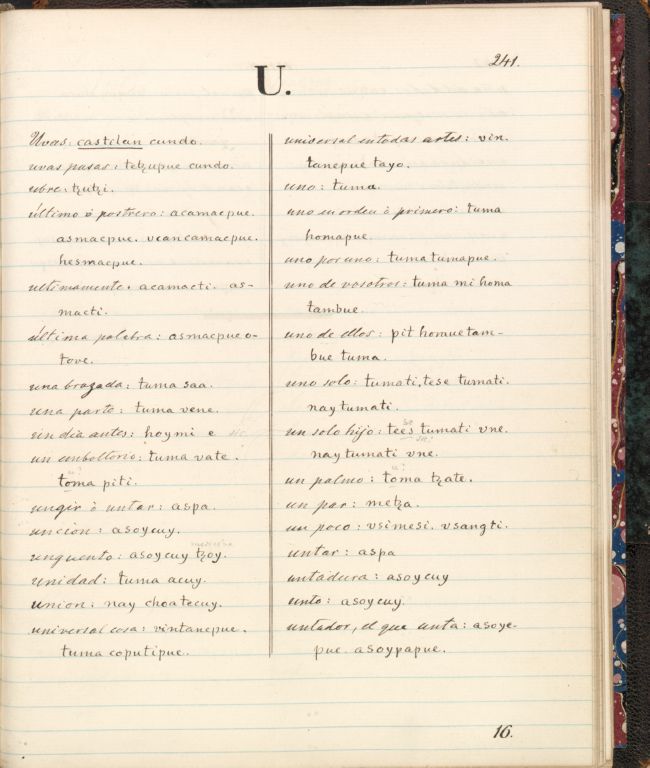 241.
U.
Uvas: castilan cundo.
uvas pasas: tetzupue cundo.
ubre: tzutzi.
último ó postrero: acamacpue.
asmacpue. vcancamacpue.
hesmacpue.
ultimamente. acamacti. as-
macti.
última palabra: asmacpue o-
tove.
una brazada: tuma saa.
una parte: tuma vene.
un dia antes: hoymi e
un emboltorio: tuma vate.
toma piti.
ungir ò untar: aspa.
uncion: asoycuy.
unguento: asoycuy tzoy.
unidad: tuma acuy.
union: nay choatecuy.
universal cosa: vintanepue.
tuma coputipue.
universal entodas artes: vin.
tanepue tayo.
uno: tuma.
uno en orden ò primero: tuma
homapue.
uno por uno: tuma tumapue.
uno de vosotros: tuma mi homa
tambue.
uno de ellos: pit homue tam-
bue tuma.
uno solo: tumati. tese tumati.
nay tumati.
un solo hijo: tees tumati vne.
nay tumati vne.
un palmo: toma tzate.
un par: metza.
un poco: vsimesi. vsangti.
untar: aspa
untadura: asoycuy
unto: asoycuy.
untador, el que unta: asoye-
pue. asoypapue.
16.